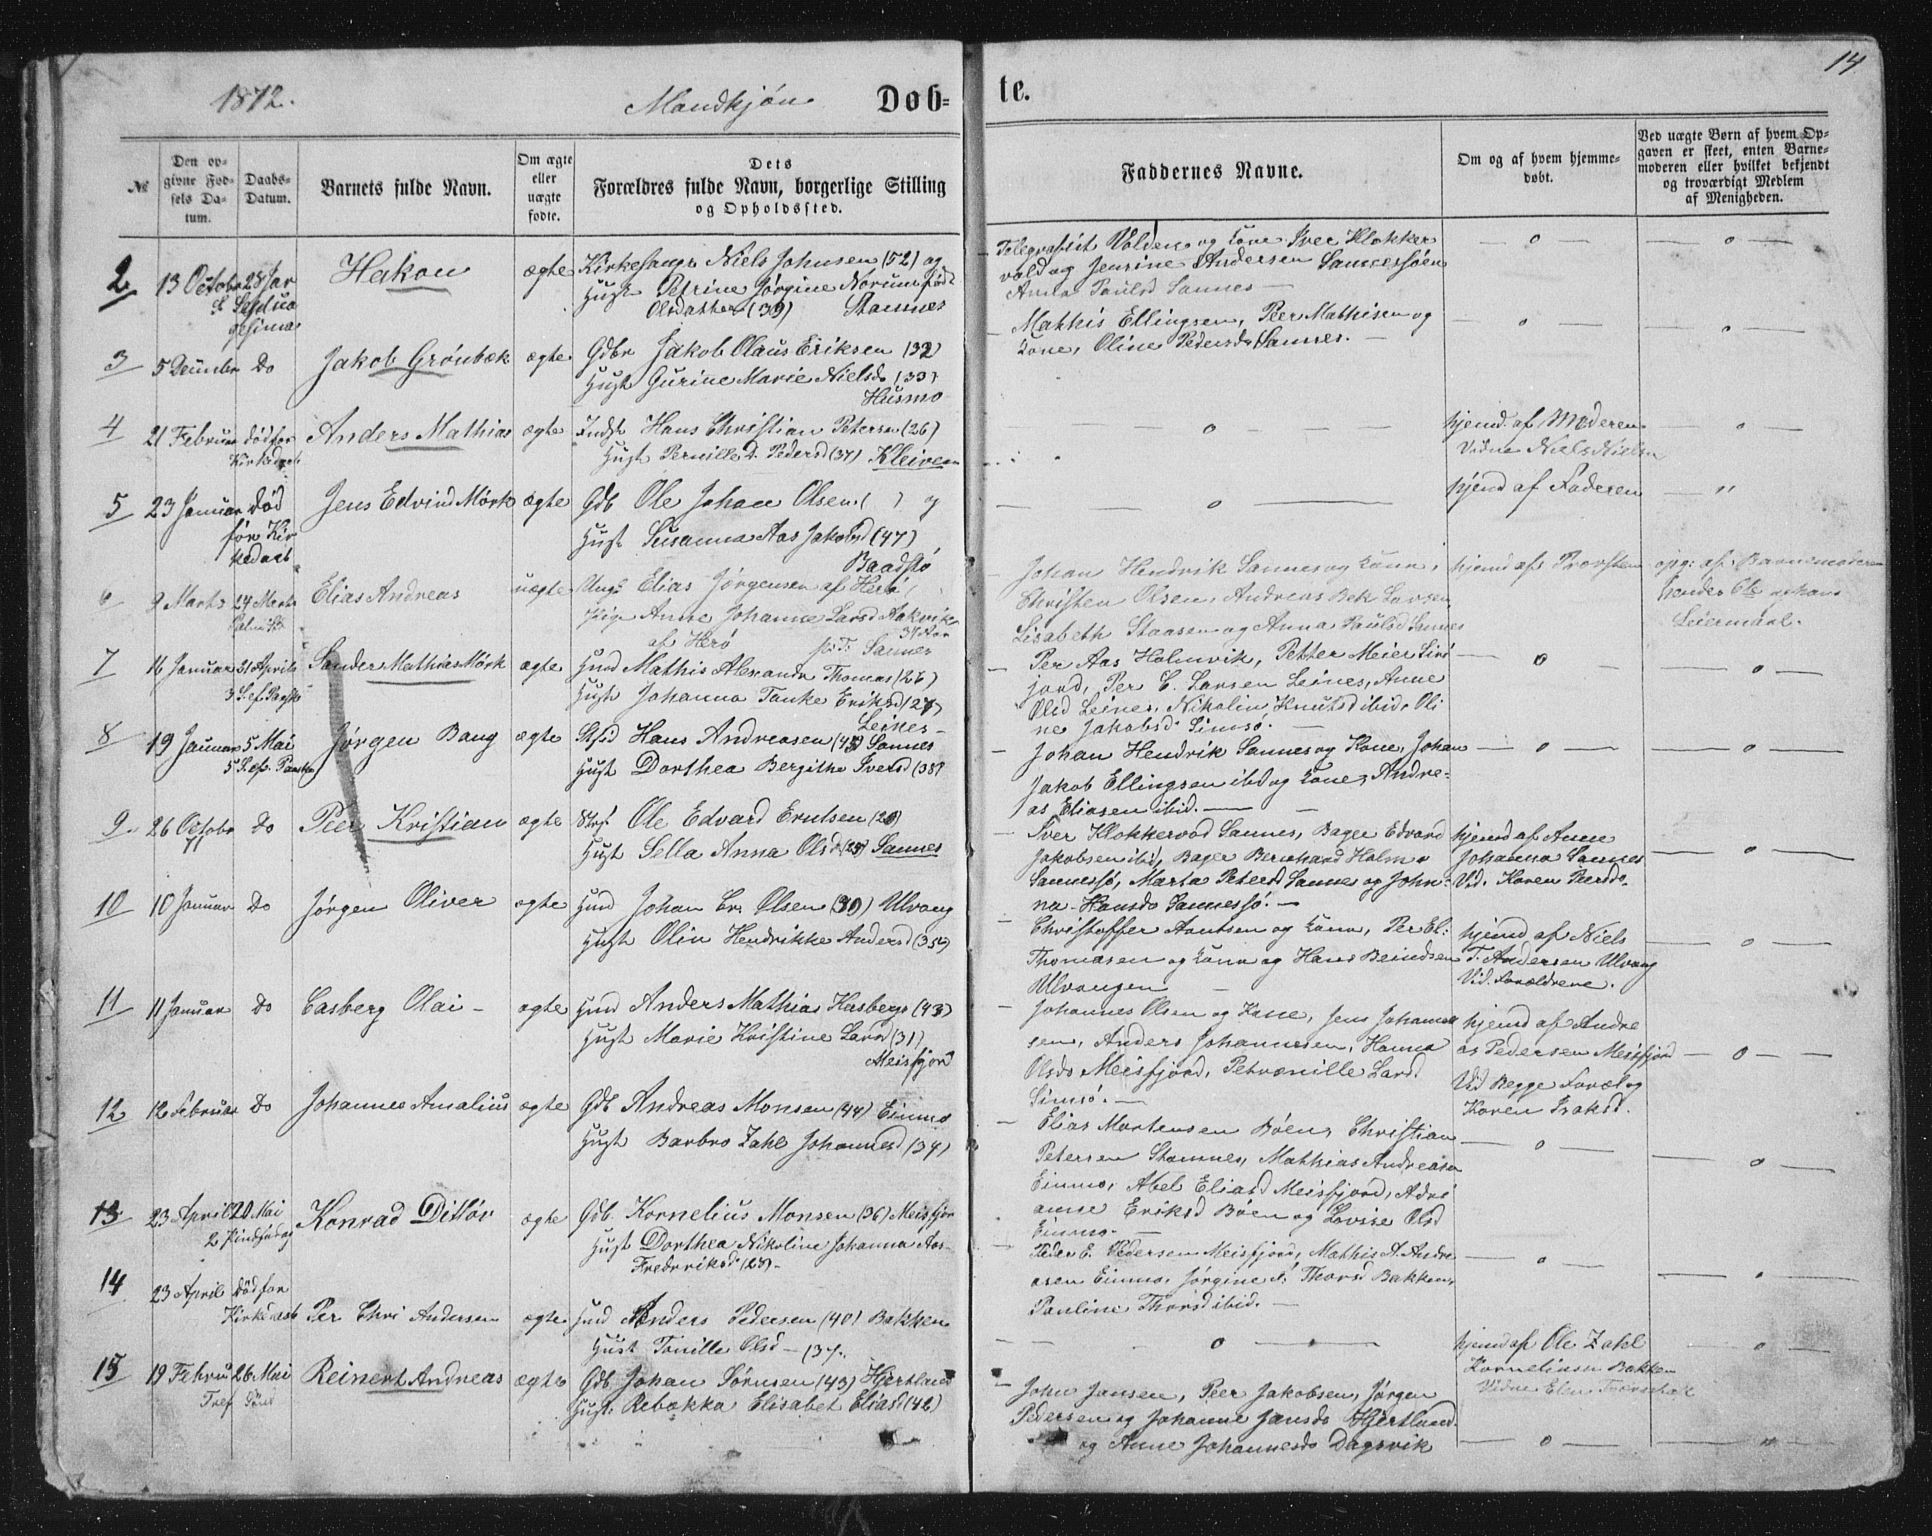 14
1872.
Mandkjøn
Døb-
te.
№
Den op-
givne Fød-
sels Da-
tum.
Daabs-
Datum.
Barnets fulde Navn.
Om ægte
eller
uægte
fødte.
Dets
Forældres fulde Navn, borgerlige Stilling
og Opholdssted.
Faddernes Navne.
Om og af hvem hjemme-
døbt.
Ved uægte Børn af hvem Op-
gaven er skeet, enten Barne-
moderen eller hvilket bekjendt
og troværdigt Medlem
af Menigheden.
2
13 Octobr
28 Jan
Hakon
ægte
Kirkesangr Niels Johnsen (52) og
Hust Petrine Jørgine Norum født
Olsdatter (39) Stamnes
Telegrafist Volden og Kone Iver Klokker
vold og Jensine Andersen Sannessøen
Anna Paulsd Sannes —
3
5 Decembr
Do
Jakob Grønbæk
ægte
Gdbr Jakob Olaus Eriksen (32)
Hust Gurine Marie Nielsd (33)
Husmo
Mathis Ellingsen, Peer Mathisen og
Kone, Oline Pedersd Sannes. —
4
21 Februar
død før
Kirkedaab
Anders Mathias
ægte
Indst Hans Christian Petersen (26)
Hust Pernille D. Pedersd (37) Kleiven
— o —
hjemd. af Moderen
Vidne Niels Nielsen
5
23 Januar
Død
før Kir
kedaab
Jens Edvind Mørk
ægte
Gdb Ole Johan Olsen ( ) og
Hust Susanna Aas Jakobsd (47)
Baadstø
— o —
hjemd af Faderen
— " —
6
9 Marts
24 Marts
Palmes
Elias Andreas
uægte
Ungk Elias Jørgensen af Herø
Pige Anne Johanne Larsd Aakvik
af Herø p.T. Sannes
Johan Hendrik Sannes og Kone,
Christen Olsen, Andreas Bek Larsen,
Lisabeth Staasen og Anna Paulsd Sannes
hjemd af Provsten
opg: af Barnemoderen
hendes og hans
Leiermaal.
7
16 Januar
21 April
Sander Mathias Mørk
ægte
Husd Mathis Alexandr Thomas (26)
Hust Johanna Tanke Eriksd (27)
Leines —
Per Aas Holmvik, Petter Meier Sini
jord, Per E. Larsen Leines, Anne
Olsd Leines, Nikolin Knutsd ibid, Oli
ne Jakobsd Simsø. —
8
19 Januar
5 Mai
Jørgen Bang
ægte
Hans Andreasen (45) Sannes
Hust Dorthea Bergithe Iversd (38)
Johan Hendrik Sannes og Kone, Johan
Jakob Ellingsen ibid og Kone, Andre-
as Eliasen ibid. —
9
26 Octobr
Do
Peer Kristian
ægte
Ole Edvard Erntsen (26)
Hust Sella Anna Olsd (25) Sannes
Iver Klokkervod Sannes, Bager Edvard
Jakobsen ibid, Bager Bernhard Holm
Sannessø, Marta Petersd Sannes og John-
na Hansd Sannessø. —
hjemd af Anne
Johanna Sannes
Vid. Karen Peersd.
10
10 Januar
Do
Jørgen Oliver
ægte
Husd Johan Er. Olsen (30) Ulvang
Hust Olin Hendrikke Andersd (35)
Christoffer Arntsen og Kone, Per El:
Thomasen og Kone og Hans Beindsen
Ulvangen —
hjemd af Niels
T. Andersen Ulvang
Vid. Forældrene.
11
11 Januar
Do
Casberg Olai —
ægte
Husd Anders Mathias Kasberg (43)
Hust Marie Kristine Larsd (31)
Meisfjord
Johannes Olsen og Kone, Jens Johanne
sen, Anders Johannesen, Hanna
Olsd Meisfjord, Petronille Larsd
Simsø. —
hjemd af Andre
as Pedersen Meisfjord
Vid Begge Foræl og
Karen Isaksd.
12
12 Februar
Do
Johannes Amalius
ægte
Gdb Andreas Monsen (44) Einmo
Hust Barbro Zahl Johannesd (34)
Elias Mortensen Bøen, Christian
Petersen Stamnes, Mathias Andreasen
Einmo, Abel Eliasd Meisfjord, Adri
anne Eriksd Bøen og Lovise Olsd
Einmo. —
13
23 April
20 Mai
2 Pindsedag
Konrad Ditløv
ægte
Gdb. Kornelius Monsen (36) Meisfjor
Hust Dorthea Nikoline Johanna Aas
Fredriksd (28) —
Peder E. Pedersen Meisfjord, Mathis A. Andre
asen Einmo, Jørgine Thorsd Bakken,
Pauline Thorsd ibid. —
14
23 April
Død før
Kirkedaab
Per Chri Andersen
ægte
Husd Anders Pedersen (40) Bakken
Hust Tonille Olsd — (37.
— o —
hjemd af Ole Zahl
Korneliusen Bakken
Vidne Elen
15
19 Febru
26 Mai
Tref Sønd
Reinert Andreas
ægte
Gdb Johan Sørnsen (43) Hjertland
Hust: Rebækka Elisabet Eliasd (42)
John Jansen, Peer Jakobsen, Jørgen
Pedersen og Johanne Jansd Hjertland
og Anne Johannesd Dagsvik